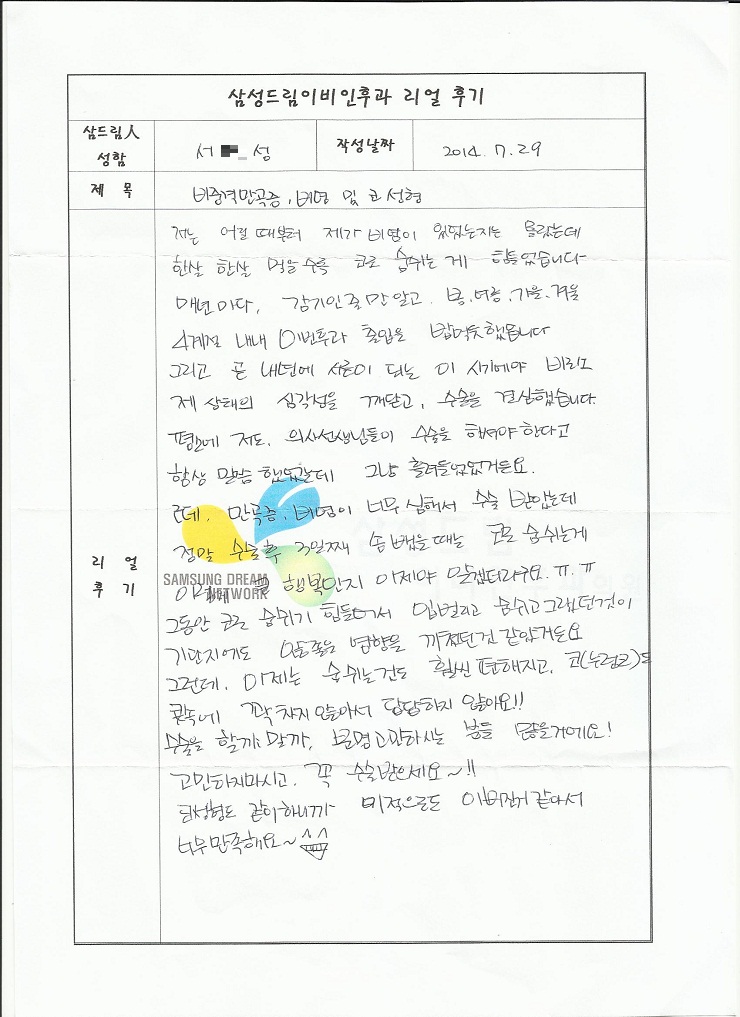 삼성드림이비인후과 리얼 후기
삼드림人
성함
서 성
작성날짜
2014. 7. 29
제 목
비중격만곡증, 비염 및 코성형
저는 어릴 때부터 제가 비염이 있었는지는 몰랐는데
한살 한살 먹을수록 코로 숨쉬는 게 힘들었습니다
매년마다, 감기인줄만 알고. 봄,여름,가을,겨울
4계절 내내 이비인후과 출입을 밥먹듯했습니다
그리고 곧 내년에 서른이 되는 이 시기에야 비로소
제 상태의 심각성을 깨닫고, 수술을 결심했습니다.
평소에 저도. 의사선생님들이 수술을 하셔야한다고
항상 말씀 했었는데 그냥 흘려들었었거든요.
근데, 만곡증, 비염이 너무 심해서 수술 받았는데
정말 수술후 3일째 솜 뺐을때는 코로 숨쉬는게
이렇게 행복한지 이제야 알겠더라구요. ㅠ.ㅠ
그동안 코로 숨쉬기 힘들어서 입벌리고 숨쉬고 그랬던것이
기관지에도 안좋은 영향을 끼쳤던건 같았거든요
그런데, 이제는 숨쉬는것도 훨씬 편해지고, 코(누런코)도
콧속에 꽉 차지 않아서 답답하지 않아요!!
수술을 할까, 말까, 분명 고민하시는 분들 많을거에요!
고민하지마시고, 꼭 수술받으세요~!!
코성형도 같이하니까 미적으로도 이뻐진거 같아서
너무만족해요~^^
리 얼
후 기
SAMSUNG DREAM
NETWORK
삼성드림